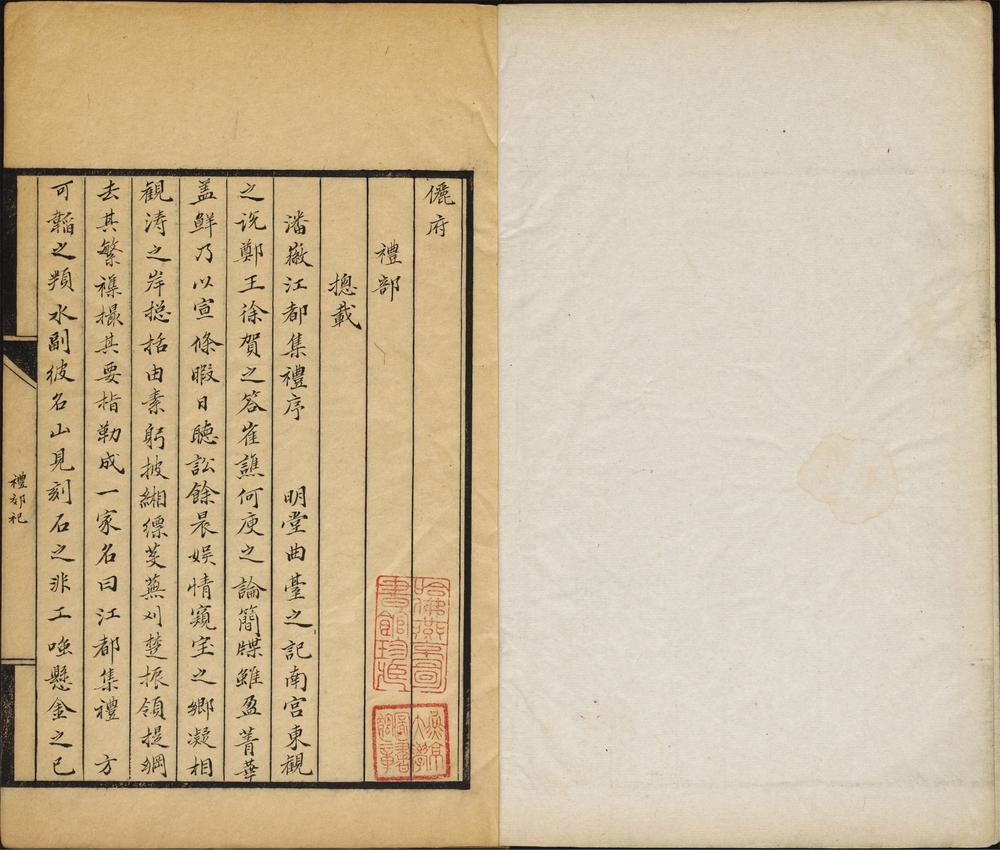 儷府
禮部
摠載
潘徽江都集禮序 明堂曲臺之記南宮東觀
之説鄭王徐賀之答崔譙何庾之論簡牒雖盈菁華
盖鮮乃以宣條暇日聽訟餘晨娱情窺宝之鄉凝相
觀涛之岸摠括由素躬披緗縹芟蕪刈楚振領提綱
去其繁襍撮其要指勒成一家名曰江都集禮 方
可韜之頖水副彼名山見刻石之非工嗤懸金之已
禮部祀
哈佛燕京圖書館珍藏
燕京大學圖書館章